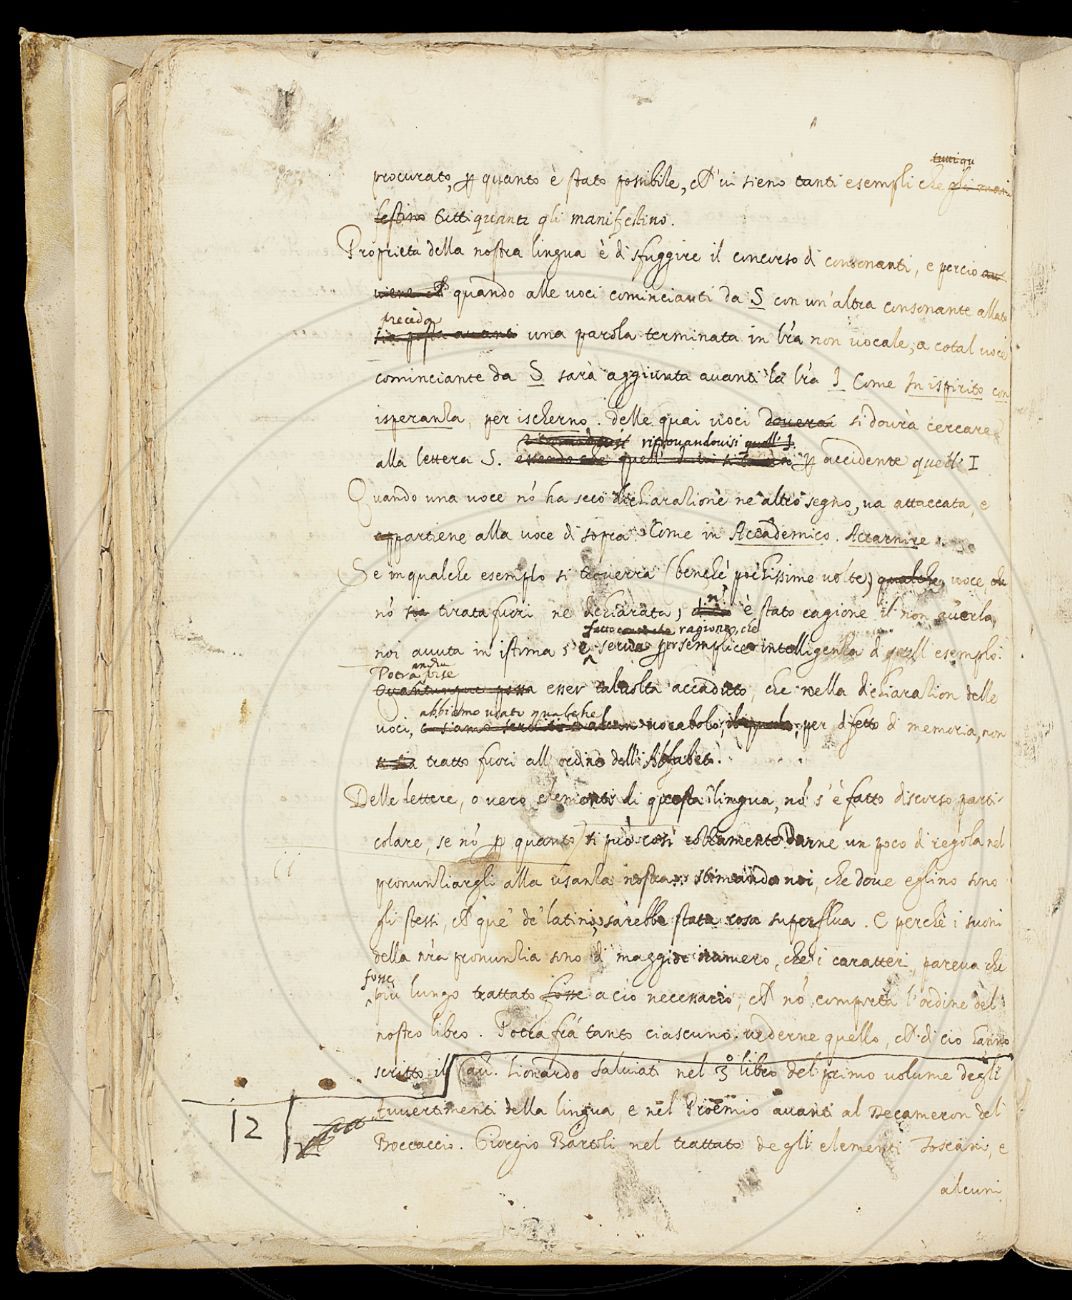 tutti qu
procurato, p quanto è stato possibile, ch' ui sieno tanti esempli che gli mani
festino tutti quanti gli manifestino.
Proprietà della nostra lingua è di sfuggire il concorso di consonanti, e perciò au
uiene ch quando alle uoci comincianti da S con un'altra consonante allato
preceda
una parola terminata in l'ra non uocale, a cotal uoce
cominciante da S sarà aggiunta auanti la l'ra I Come In ispirito con
isperanza, per ischerno. delle quai uoci si dourà cercare
ritrouandouisi quell' I
alla lettera S. p accidente quell' I
Quando una uoce no' ha seco dichiarazione ne altro segno, ua attaccata, e
appartiene alla uoce di sopra Come in Accademico. Accarnire.
Se in qualche esemplo si trouerrà (benchè pochissime uolte) qualche uoce, che
no' sia tirata fuori, ne dichiarata, è stato cagione il non auerla
ragione, che
noi auuta in istima, e seruà per semplice intelligenza d quell esemplo.
Potrà anche
forse
Quantunque possa esser taluolta accaduto, che nella dichiarazion delle
abbiamo usato qualche
uoci, uocabolo, il quale, per difetto di memoria, non
si sia tratto fuori all' ordine dell' Alfabeto.
Delle lettere, o uero elementi di questa lingua, no' s'è fatto discorso parti-
colare, se no' p quanto si può così rozzamente Darne un poco di regola nel
pronunziargli alla usanza nostra: stimando noi, che doue eglino sono
gli stessi, ch que' de' latini, sarebbe stata cosa superflua. E perchè i suoni
della n'ra pronunzia sono di maggior numero, che i caratteri, pareua che
fosse
più lungo trattato fosse a ciò necessario, ch no' comporta l'ordine del
nostro libro. Potrà fra tanto ciascuno uederne quello, ch di ciò hanno
scritto il Cau. Lionardo Saluiati nel 3o libro del primo volume degli
Auuertimenti della lingua, e nel Proemio auanti al Decameron del
12
Boccaccio. Giorgio Bartoli nel trattato degli elementi Toscani, e
alcuni